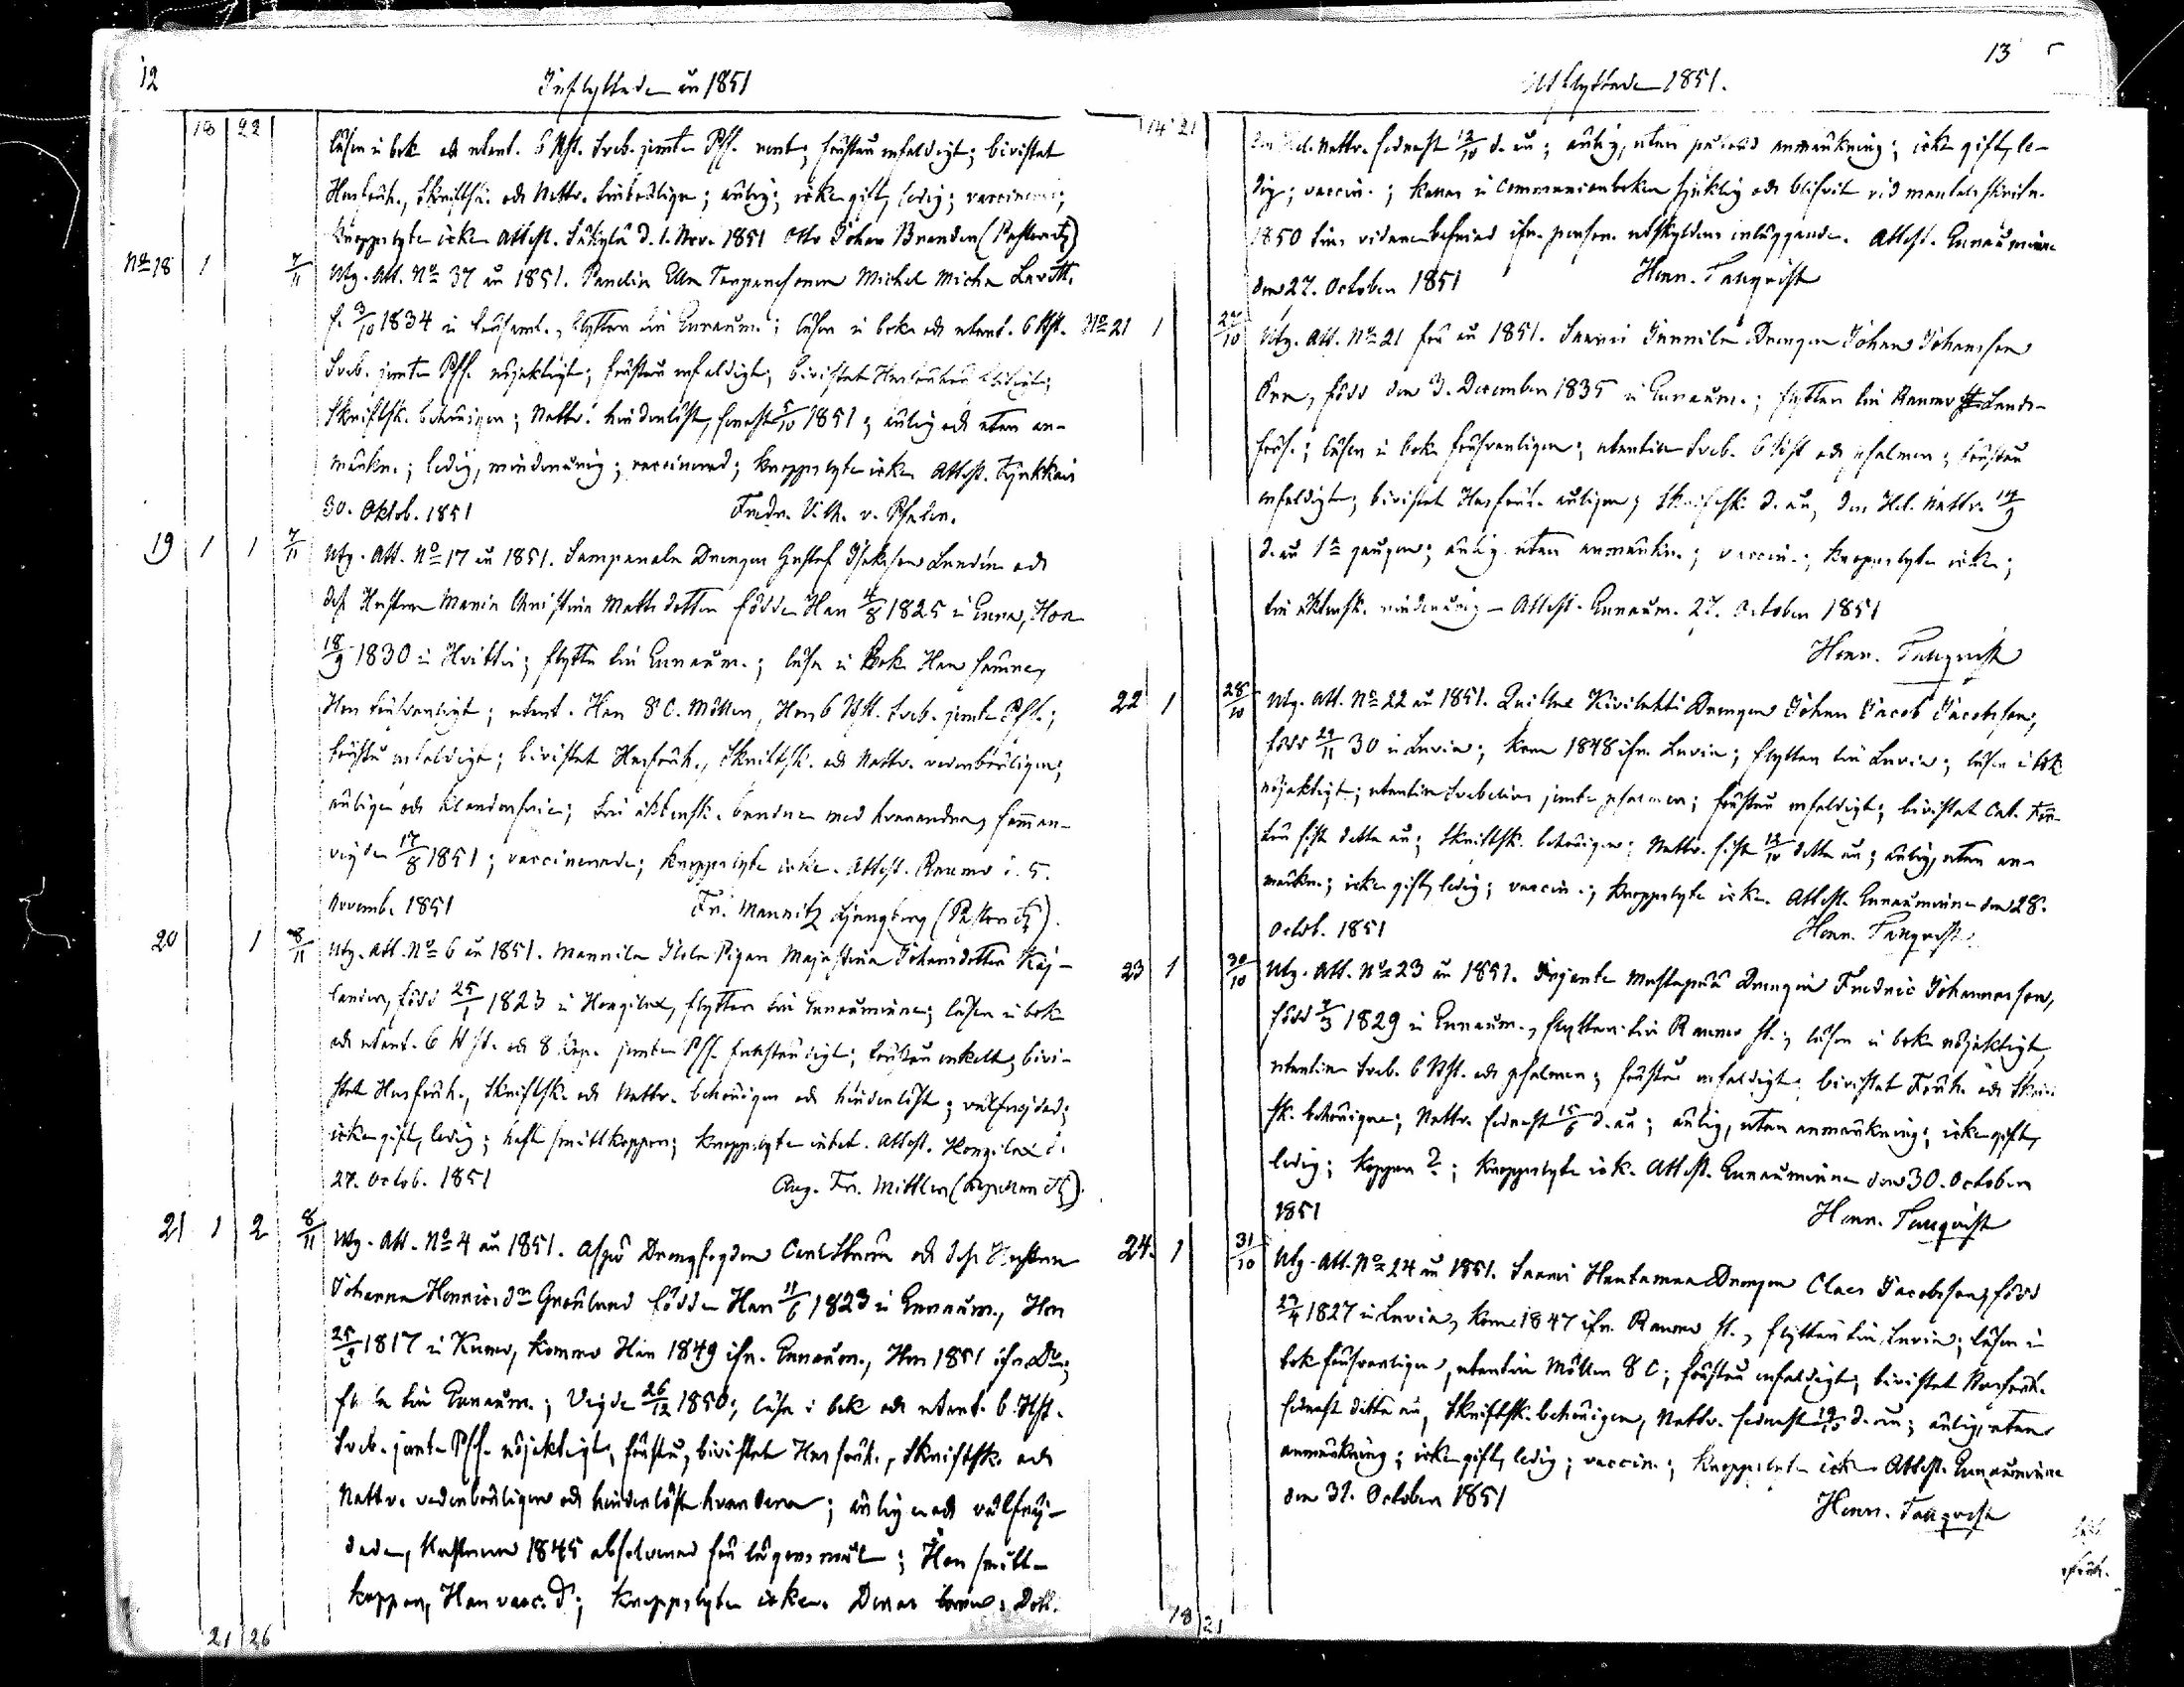 12
Inflyttade år 1851
18 22
läser i bok och utant. 6 Hst. Sveb. jemte Psl. ; förstår enfaldigt; bivistat
Husförh., Skriftsk. och Nattv. ; ärlig; icke gift, ledig; vaccinerad;
Kroppslyte icke. Attest. Säkylä d. 1. Nov. 1851 Otto Johan Brander (Pastor)
No 18 1 7/11 Utg. Att. No 37 år 1851. Michel Michelsson
f. 3/10 1834 i, flyttar till Euraåm.; läser i bok och utant. 6 Hst.
Sveb. jemte Psl. nöjaktigt; förstår enfaldigt; bivistat Husförhör
Skriftsk. behörigen; Nattv. hinderlöst, senast 5/10 1851; ärlig och utan an-
märkn.; ledig, minderårig; vaccinerad; kroppslyte icke. Attest.
30. Oktob. 1851 Fredr. Vilh. v. Pfaler.
19 1 1 7/11 Utg. Att. No 17 år 1851. Lampanala Drengen Gustaf Isaksson Lundén och
dess Hustru Maria Christina Mattsdotter födde Han 4/8 1825 i Eura, Hon
18/9 1830 i Hvittis; flytta till Euraåm.; läser i Bok Han
Hon försvarligt; utant. Han 8 C. Möller, Hon 6 Hst. Sveb. jemte Psl.;
förstå enfaldigt; bivistat Husförh., Skriftsk. och Nattv. vederbörligen;
ärliga och klanderfria; till äktensk. bundne med hvarandra, samman-
vigde 17/8 1851; vaccinerade; kroppslyte icke. Attest. Raumo d. 5.
Novemb. 1851 Fr. Mauritz Ljungberg (Pastor).
20 1 8/11 Utg. Att. No 6 år 1851. Mannila Pigan Maja Stina Johansdotter Kaj-
lander, född 25/1 1823 i Hongilax, flyttar till Euraåminne; läser i bok
och utant. 6 Hst. och 8 Cap. jemte Psl. ; förstår enkelt, bivi-
stat Husförh., Skriftsk. och Nattv. behörigen och hinderlöst; välfrejdad;
icke gift, ledig; haft smittkoppor; kroppslyte intet. Attest. Hongilax d.
27. Octob. 1851 Aug. Fr. Mittler
21 1 2 8/11 Utg. Att. No 4 år 1851. Drengfogden Carl och dess Hustru
Johanna Henricsdr Grönlund födde Han 11/6 1823 i Euraåm., Hon
25/5 1817 i Kumo, komne Han 1849 ifr. Euraåm., Hon 1851 ifr. Do;
flytta till Euraåm.; Vigde 26/12 1850; läsa i bok och utant. 6 Hst.
Sveb. jemte Psl. nöjaktigt, förstå, bivistat Husförh., Skriftsk. och
Nattv. vederbörligen och hinderlöst hvardera; ärlig och välfrej-
dade, Hustrun 1845 absolverad för lägersmål; Hon smitt-
koppor, Han vacc.d; kroppslyte icke. Deras barn: Dott.
21 26
13
Utflyttade 1851.
14 21
den Hel. Nattv. sednast 12/10 d. år; ärlig, utan anmärkning; icke gift, le-
dig; vaccin.; kallas i Communionboken sjuklig och blifvit vid mantalsskrifn.
1850 tills vidare befriad ifr. person. utskylders erläggande. Attest. Euraåminne
den 27. October 1851 Henr. Tallqvist
No 21 1 27/10 Utg. Att. No 21 för år 1851. Saaris Junnila Drengen Johan Johansson
Orra, född den 3. December 1835 i Euraåm.; flyttar till Raumo Lands-
förs.; läser i bok försvarligen; utantill Sveb. 6 Hst och psalmer; förstår
enfaldigt; bivistat Husförh. årligen; Skriftsk. d. år, den Hel. Nattv. 14/9
d. år 1a gången; ärlig utan anmärkn.; vaccin.; kroppslyte icke;
till äktensk. minderårig – Attest. Euraåm. 27. October 1851
Henr. Tallqvist
22 1 28/10 Utg. Att. No 22 år 1851. Kivilahti Drengen Johan Jacob Jacobsson,
född 29/11 30 i Luvia; kom 1848 ifr. Luvia; flyttar till Luvia; läser i bok
nöjaktigt; utantill Svebelius jemte psalmer; förstår enfaldigt; bivistat Cat. För-
hör sist detta år; Skriftsk. behörigen; Nattv. sist 12/10 detta år; ärlig, utan an-
märkn.; icke gift, ledig; vaccin.; kroppslyte icke. Attest. Euraåminne den 28.
Octob. 1851 Henr. Tallqvist
23 1 30/10 Utg. Att. No 23 år 1851. Drengen Fredric Johansson,
född 7/3 1829 i Euraåm., flyttar till Raumo st.; läser i bok nöjaktigt,
utantill Sveb. 6 Hst. och psalmer; förstår enfaldigt; bivistat Förh. och Skrift-
sk. behörigen; Nattv. sednast 15/6 d. år; ärlig, utan anmärkning; icke gift,
ledig; koppor ?; kroppslyte ick. Attest. Euraåminne den 30. October
1851 Henr. Tallqvist
24. 1 31/10 Utg. Att. No 24 år 1851. Saaris Hantamaa Drengen Claes Jacobsson, född
27/4 1827 i Luvia, kom 1847 ifr. Raumo st., flyttar till Luvia; läser i
bok försvarligen, utantill Möller 8 C; förstår enfaldigt; bivistat Husförh.
sednast detta år, Skriftsk. behörigen, Nattv. sednast 19/10 d. år; ärlig, utan
anmärkning; icke gift, ledig; vaccin.; kroppslyte icke. Attest. Euraåminne
den 31. October 1851 Henr. Tallqvist
18 21